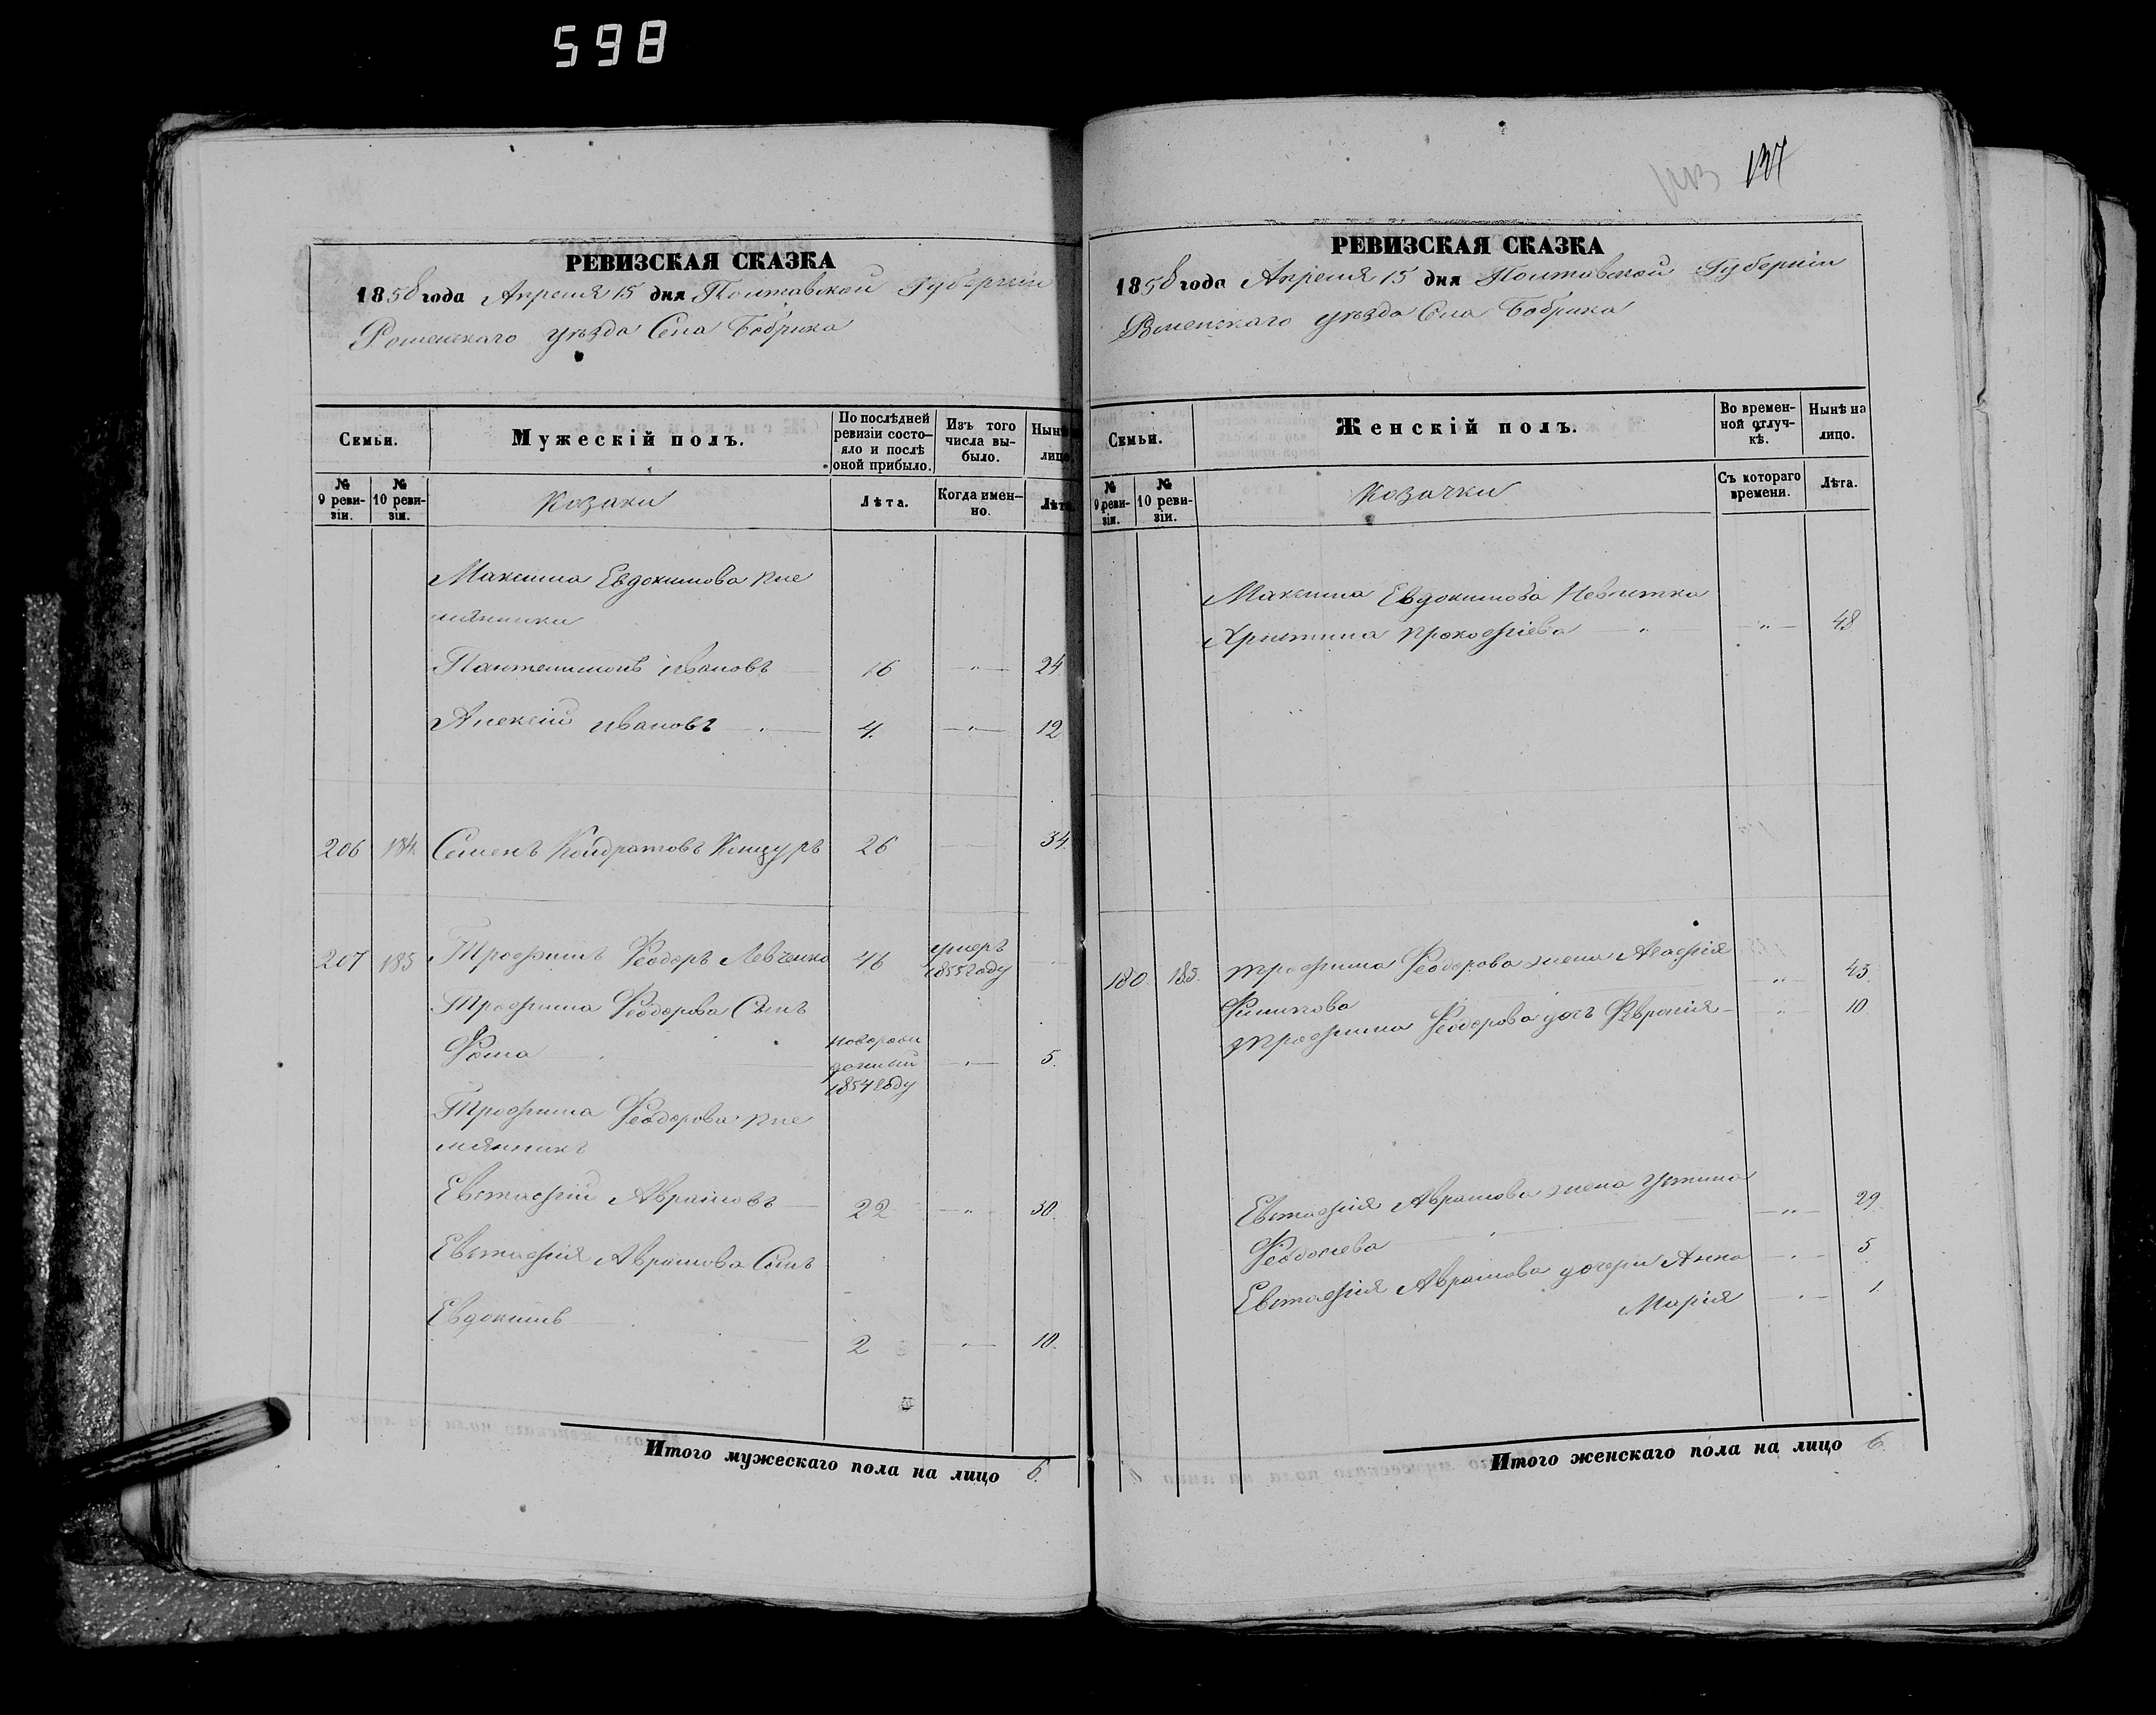 598
РЕВИЗСКАЯ СКАЗКА
1858 года Апреля 15 дня Полтавской Губернии
Роменскаго уѣзда Села Бобрика
Семьи.
Мужескій полъ.
По послѣдней ревизіи состо-
яло и послѣ
оной прибыло.
Изъ того
числа вы-
было.
Нынѣ
лицо
№
9 реви-
зіи.
№
10 реви-
зіи.
Козаки
Лѣта.
Когда имен-
но.
Лѣта
Максима Евдокимова пле
мянники
Пантелимонъ Ивановъ 16 24
Алексій Ивановъ 4. 12
206 184. Семенъ Кондратовъ Кошуръ 26 34.
207 185 Трофимъ Феодоръ Левченко 46 умеръ 1855 году
Трофима Феодорова Сынъ
Фома новорож
денный
1854 году 5.
Трофима Феодорова пле
мянникъ
Евстафій Аврамовъ 22 30.
Евстафія Аврамова Сынъ
Евдокимъ 2 10.
Итого мужескаго пола на лицо 6.
137
РЕВИЗСКАЯ СКАЗКА
1858 года Апреля 15 дня Полтавской Губерніи
Роменскаго уѣзда Села Бобрика
Семьи.
Женскій полъ.
Во времен-
ной отлуч-
кѣ.
Нынѣ на
лицо.
№
9 реви-
зіи.
№
10 реви-
зіи.
Козачки
Съ котораго
времени.
Лѣта.
Максима Евдокимова Невѣстка
Христина Прокофіева 48
180. 185. Трофима Феодорова жена Агафія
Филипова 43.
Трофима Феодорова дочь Февронія 10.
Евстафія Аврамова жена Устина
Феодосіева 29
Евстафія Аврамова дочери Анна 5
Марія 1.
Итого женскаго пола на лицо 6.